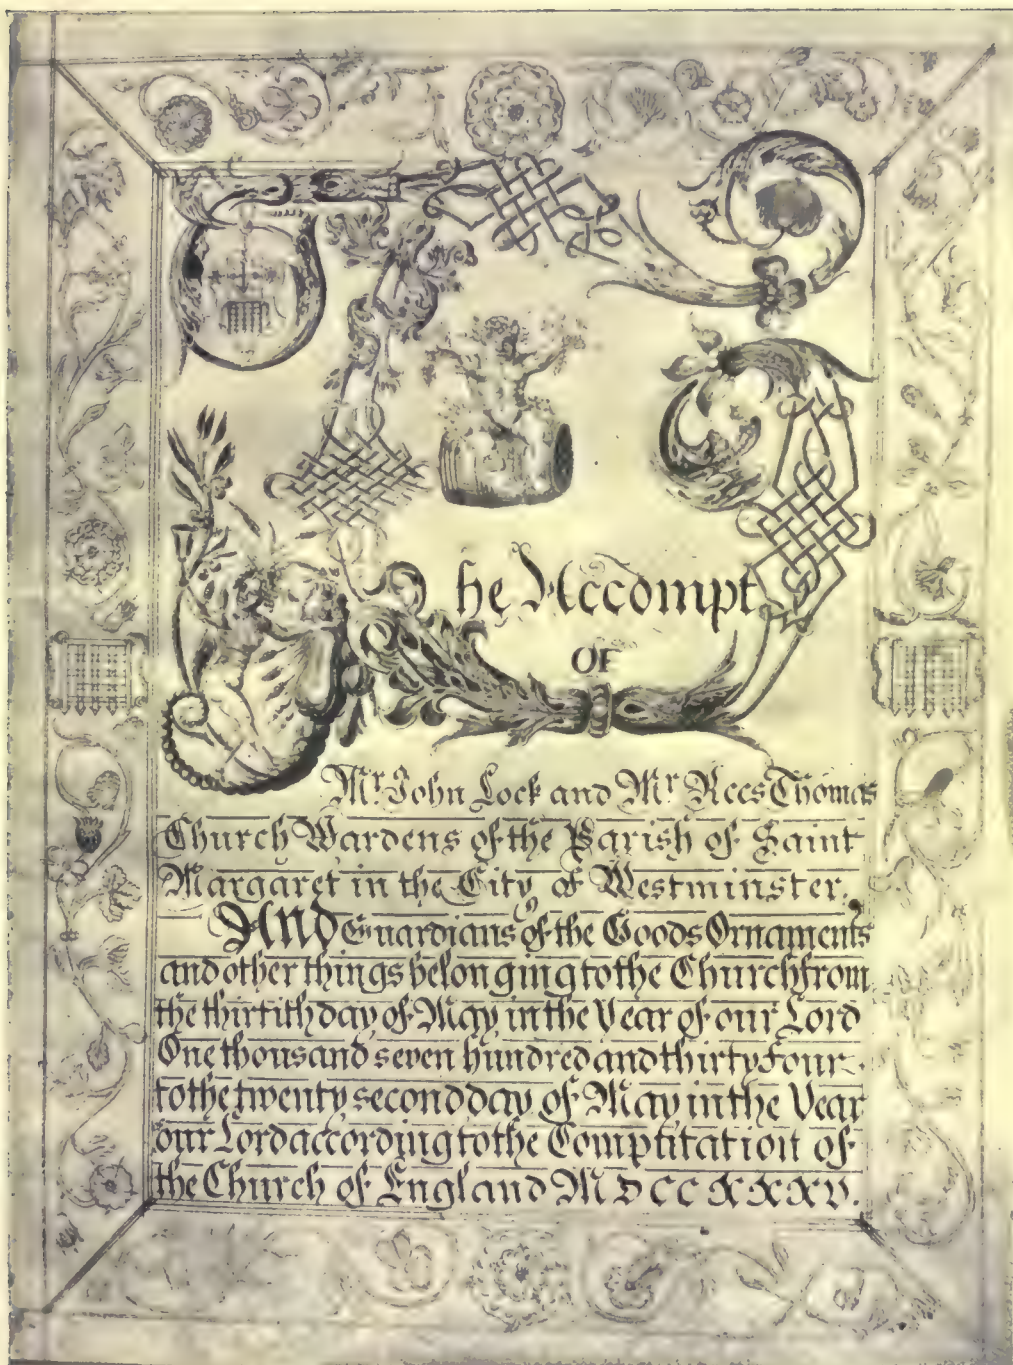 The Accompt
OF
Mr. John Lock and Mr Rees Thomas
Church Wardens of the Parish of Saint
Margaret in the City of Westminster.
And Guardians of the Goods Ornaments
and other things belonging to the Church from
the thirtith day of May in the Year of our Lord
One thousand seven hundred and thirty Four
to the twenty second day of May in the Year
our Lord according to the Comptitation of
the Church of England MDCCXXXV.